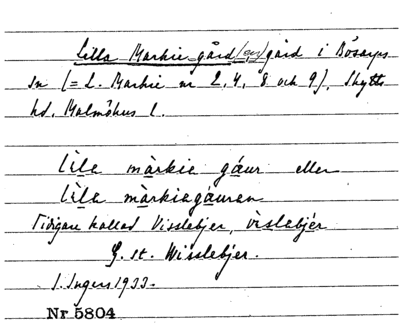 Lilla Markie gård(en) gård i Bösarps
sn (= L. Markie nr 2, 4, 8 och 9), Skytts
hd, Malmöhus l.
lìla màrkia gáur eller
lìla màrkiagáuren
Tidigare kallad Visslebjer, vìslabjér
G. st. Wisslebjer.
I. Ingers 1933.
Nr 5804